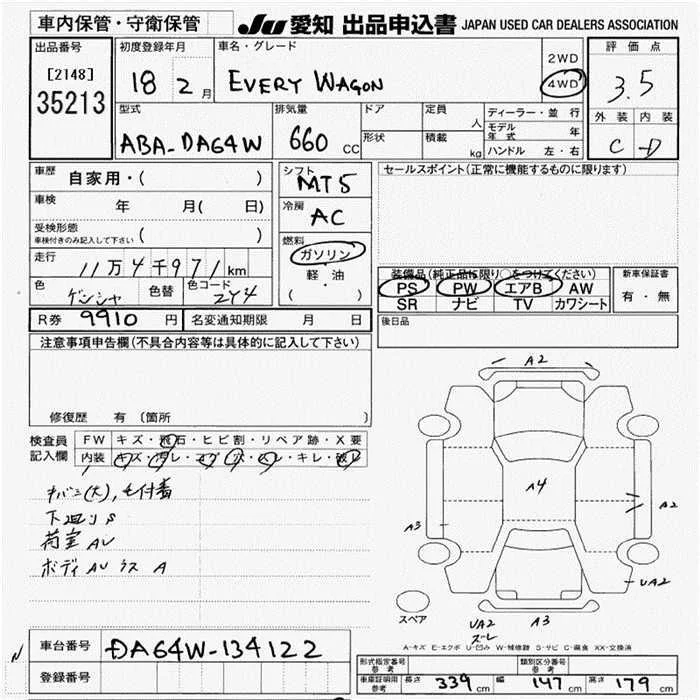 車内保管・守衛保管 JU 愛知 出品申込書 JAPAN USED CAR DEALERS ASSOCIATION
出品番号 初度登録年月 車名・グレード 評価点
[2148] 2WD
35213 18 2月 EVERY WAGON 4WD 3.5
型式 排気量 ドア 定員 人 ディーラー・並行 外装 内装
モデル年式 年
ABA-DA64W 660 CC 形状 積載 kg ハンドル 左・右 C D
車歴 自家用・( ) シフト MT5 セールスポイント(正常に機能するものに限ります)
車検 年 月( 日) 冷房 AC
受検形態
車検付きのみ記入して下さい ( ) 燃料
走行 11万4千971km ガソリン 装備品(純正品に限り○をつけてください) 新車保証書
色 ゲンシャ 色替 色コード 2Y4 軽油 PS PW エアB AW 有・無
( ・ ) SR ナビ TV カワシート
R券 9910 円 名変通知期限 月 日 後日品
注意事項申告欄(不具合内容等は具体的に記入して下さい)
A2
修復歴 有 (箇所
検査員 FW キズ・飛石・ヒビ割・リペア跡・X要
記入欄 内装 キズ・汚レ・コゲ・穴・スレ・キレ・破レ
A4
A2
A3
下回りS
荷室AU
ボディAUウスA
UA2
スペア UA2 A3
スレ
A-キズ E-エクボ U-凹み W-補修跡 S-サビ C-腐食 XX-交換済
N 車台番号 DA64W-134122
登録番号 型式指定番号 参考 類別区分番号 参考
車庫証明用 参考 長さ 339 cm 幅 147 cm 高さ 179 cm